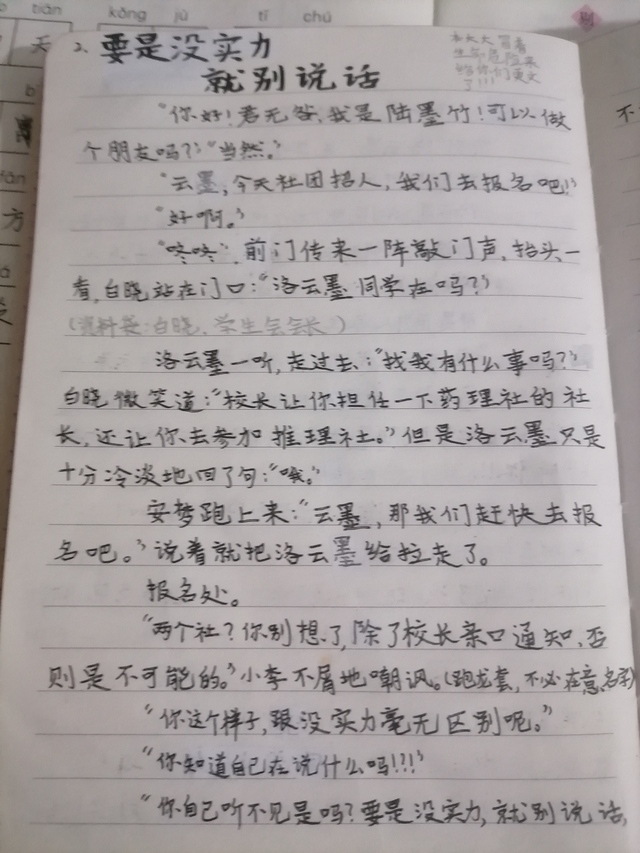 kǒng jù tǐ chú
tiān
天
方
别
不
2. 要是没实力
就别说话
本大大冒着
生命危险来
给你们更文
了!!!
“你好!君无咎,我是陆墨竹!可以做
个朋友吗?”“当然。”
“云墨,今天社团招人,我们去报名吧!”
“好啊。”
“咚咚”,前门传来一阵敲门声,抬头一
看,白晓站在门口:“洛云墨同学在吗?”
(资料是:白晓,学生会会长)
洛云墨一听,走过去:“找我有什么事吗?”
白晓微笑道:“校长让你担任一下药理社的社
长,还让你去参加推理社。”但是洛云墨只是
十分冷淡地回了句:“哦。”
安梦跑上来:“云墨,那我们赶快去报
名吧。”说着就把洛云墨给拉走了。
报名处。
“两个社?你别想了,除了校长亲口通知,否
则是不可能的。”小李不屑地嘲讽。(跑龙套,不必在意名字)
“你这个样子,跟没实力毫无区别呢。”
“你知道自己在说什么吗!!!”
“你自己听不见是吗?要是没实力,就别说话,